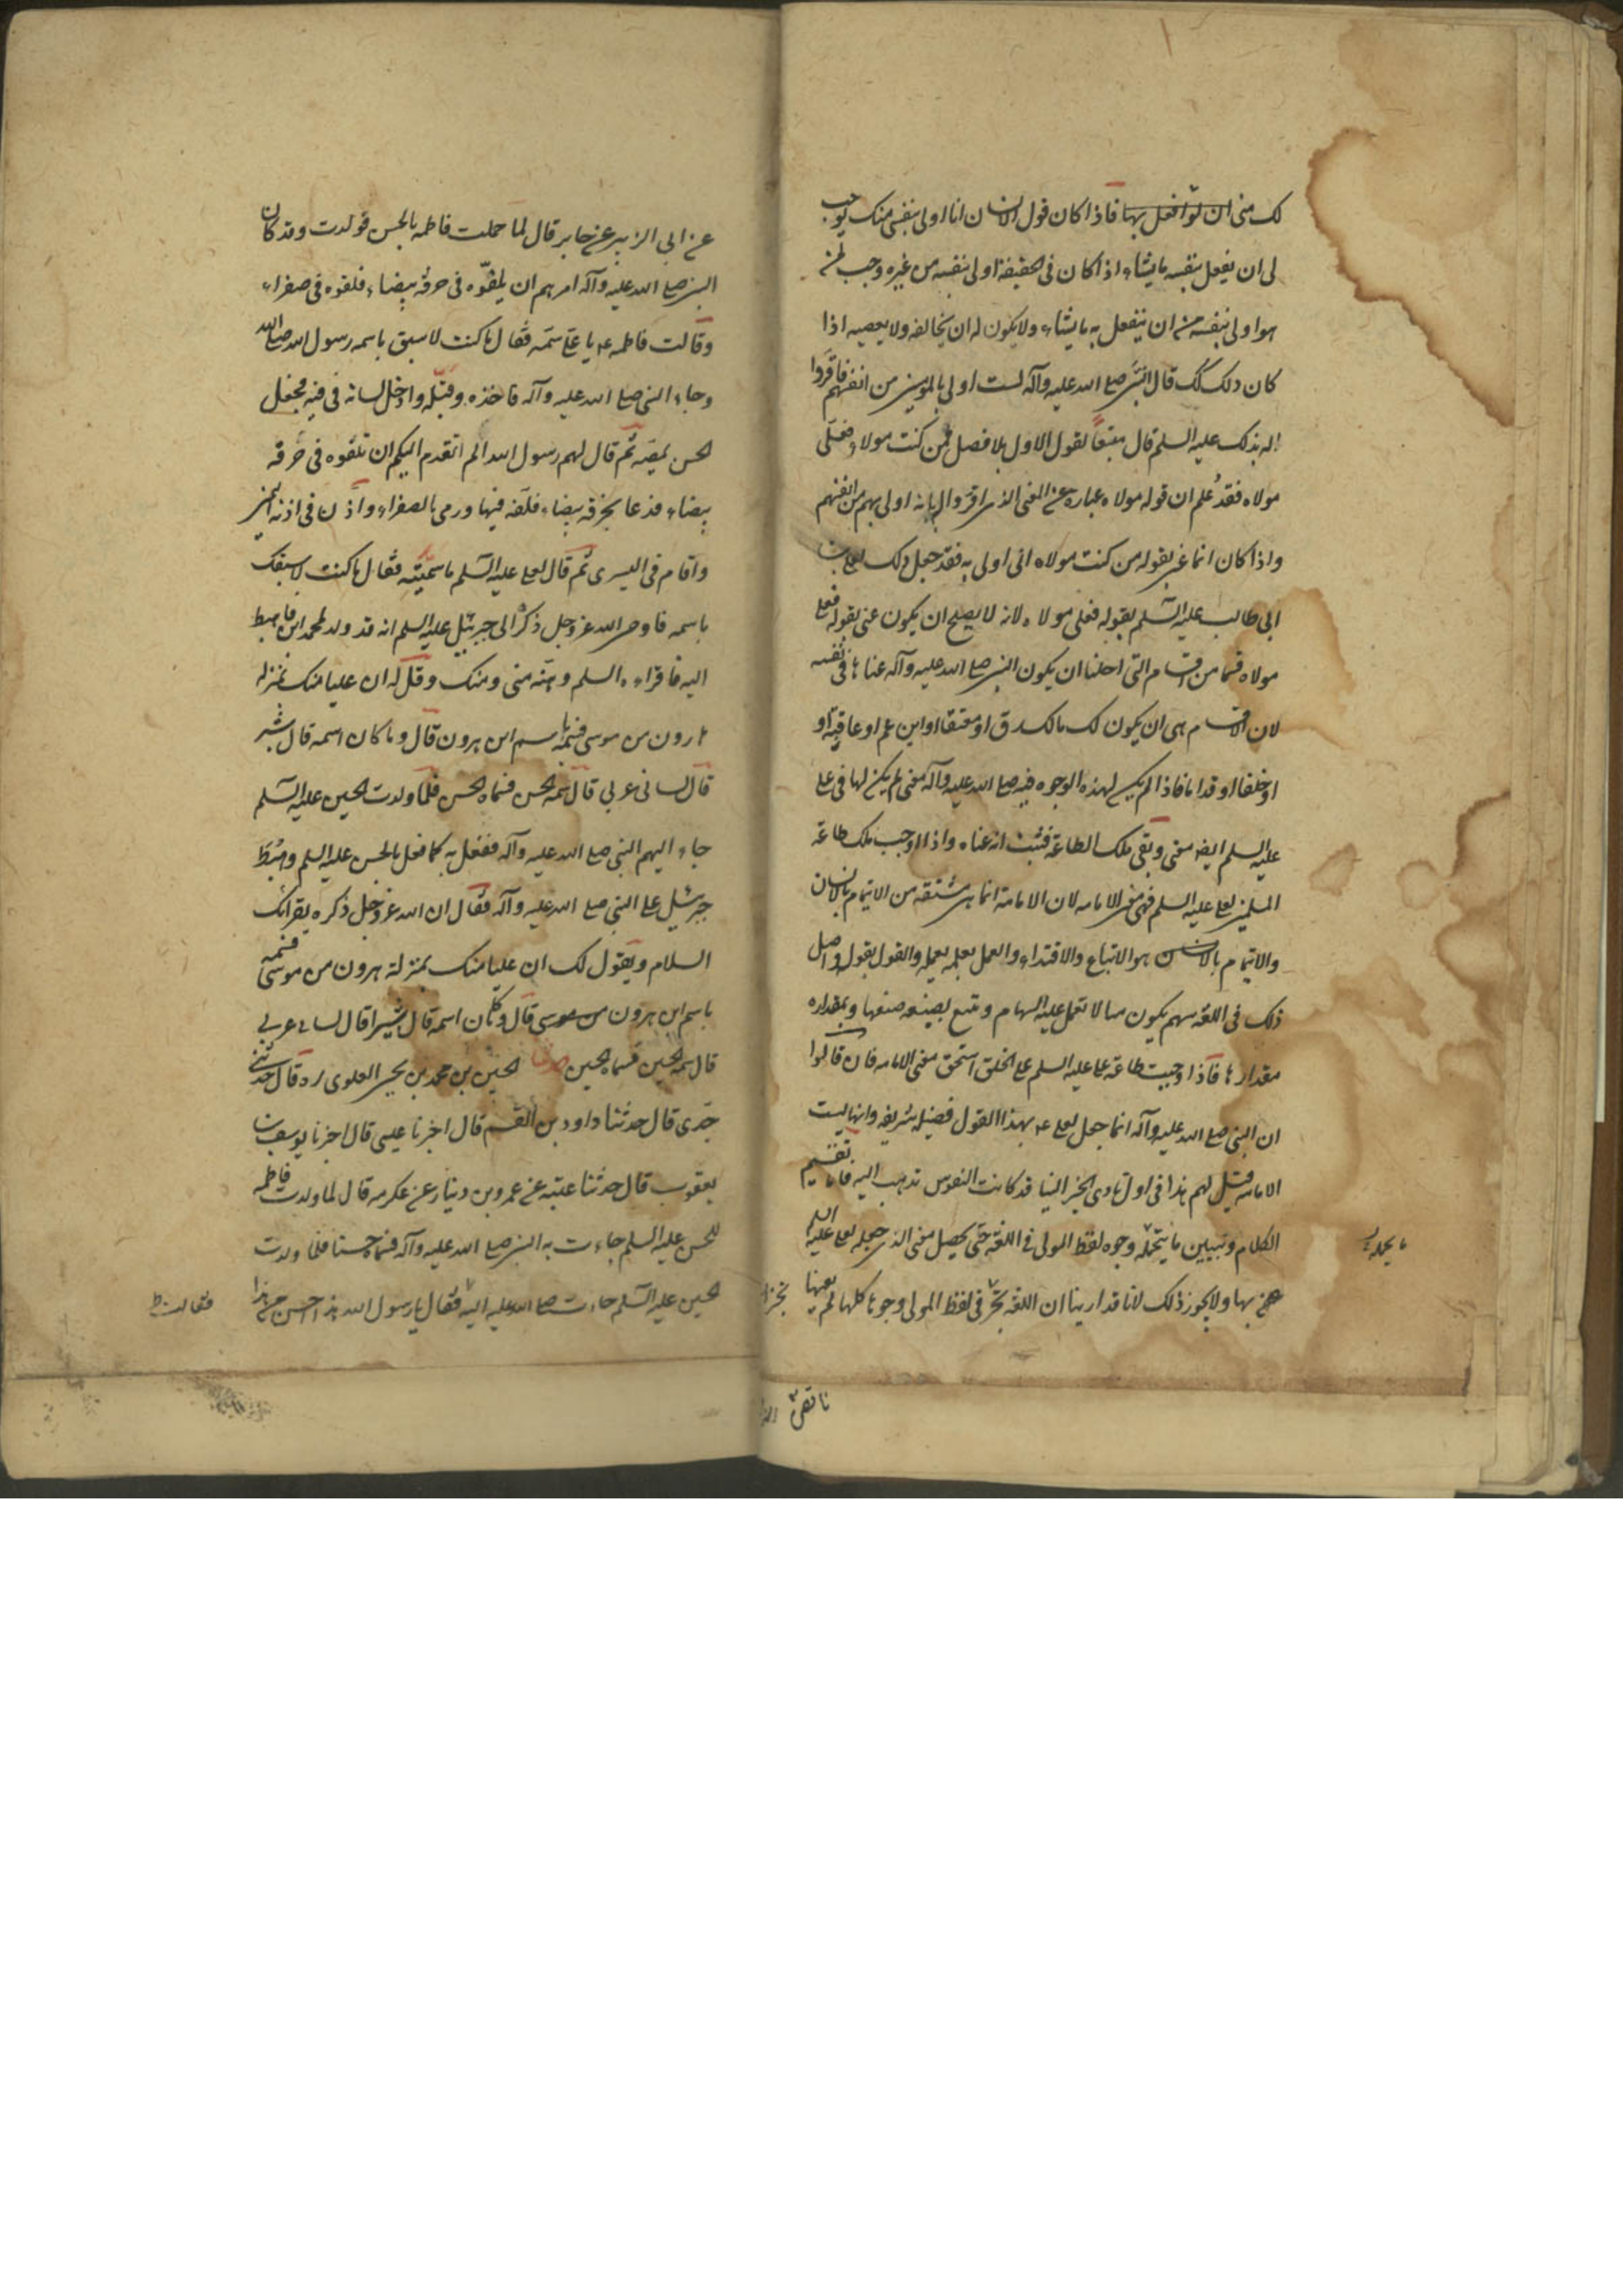 لك منى ان لو افعل بها فاذا كان قول الانسان انا اولى بنفسى منك يوجب
لى ان يفعل بنفسه ما يشاء اذا كان فى الحقيقة اولى بنفسه من غيره وجب لمن
هو اولى بنفسه منه ان يفعل به ما يشاء ولا يكون له ان يخالفه ولا يعصيه اذا
كان ذلك كك قال النبى صلع الله عليه وآله الست اولى بالمومنين من انفسهم فاقروا
له بذلك عليه السلم قال متبعا لقول الاول بلا فصل فمن كنت مولاه فعلى
مولاه فقد علم ان قوله مولاه عبارة عن المعنى الذى اقروا له بانه اولى بهم من انفسهم
واذا كان انما عنى بقوله من كنت مولاه انى اولى به فقد جعل ذلك لعلى بن
ابى طالب عليه السلم بقوله فعلى مولاه لانه لا يصلح ان يكون عنى بقوله فعلى
مولاه قسما من الاقسام التى احلنا ان يكون النبى صلع الله عليه وآله عناها فى نفسه
لان الاقسام هى ان يكون لك مالك رق او معتقا او ابن عم او عاقبة او
او خلفا او قداما فاذا لم يكن لهذه الوجوه فيه صلع الله عليه وآله معنى لم يكن لها فى على
عليه السلم ايضا معنى وبقى ملك الطاعة فثبت انه عناه واذا اوجب ملك طاعة
المسلمين لعلى عليه السلم فهى معنى الامامه لان الامامة انما هى مشتقه من الايتمام بالانسان
والايتمام بالانسان هو الاتباع والاقتداء والعمل بعلمه بعمله والقول بقوله واصل
ذلك فى اللغه سهم يكون مثالا تعمل عليه السهام ويتبع بصنعه صنعها وبمقداره
مقدارها فاذا وجبت طاعة على عليه السلم على الخلق استحق معنى الامامه فان قالوا
ان النبى صلع الله عليه وآله انما جعل لعلى ع بهذا القول فضيله شريفه وانها ليست
الامامه قيل لهم هذا فى اول تادى الخبر الينا قد كانت النفوس تذهب اليه فاما تقسيم
الكلام وتبيين ما يتحمله وجوه لفظ المولى فى اللغة حتى يحصل معنى الذى جعله لعلى عليه السلم
بها ولا يجوز ذلك لانا قد اراينا ان اللغه تجيز فى لفظ المولى وجوها كلها لم يعنها
ما يحمله
عن ابى الزبير عن جابر قال لما حملت فاطمه بالحسن فولدت وقد كان
النبى صلع الله عليه وآله امرهم ان يلفوه فى خرقه بيضاء فلفوه فى صفراء
وقالت فاطمه ع يا على سمه فقال ما كنت لاسبق باسمه رسول الله صلع الله
وجاء النبى صلع الله عليه وآله فاخذه وقبله وادخل لسانه فى فيه فجعل
الحسن يمصه ثم قال لهم رسول الله الم اتقدم اليكم ان تلفوه فى خرقه
بيضاء فدعا بخرقه بيضاء فلفه فيها ورمى بالصفراء واذن فى اذنه اليمنى
واقام فى اليسرى ثم قال لعلى عليه السلم ما سميته فقال ما كنت لاسبقك
باسمه فاوحى الله عز وجل ذكره الى جبرئيل عليه السلم انه قد ولد لمحمد ابن فاهبط
اليه فاقراءه السلم وهنه منى ومنك وقل له ان عليا منك بمنزله
هارون من موسى فسمه باسم ابن هرون قال وما كان اسمه قال شبر
قال لسانى عربى قال سمه الحسن فسماه الحسن فلما ولدت الحسين عليه السلم
جاء اليهم النبى صلع الله عليه وآله ففعل به كما فعل بالحسن عليه السلم وهبط
جبرئيل على النبى صلع الله عليه وآله فقال ان الله عز وجل ذكره يقرائك
السلام ويقول لك ان عليا منك بمنزلة هرون من موسى فسمه
باسم ابن هرون من موسى قال وما كان اسمه قال شبيرا قال لسانى عربى
قال سمه الحسين فسماه الحسين حدثنا الحسين بن محمد بن يحيى العلوى ره قال حدثنى
جدى قال حدثنا داود بن القسم قال اخبرنا عيسى قال اخبرنا يوسف بن
يعقوب قال حدثنا عتبه عن عمرو بن دينار عن عكرمه قال لما ولدت فاطمه
الحسن عليه السلم جاءت به النبى صلع الله عليه وآله فسماه حسنا فلما ولدت
الحسين عليه السلم جاءت صلع الله عليه اليه فقال يا رسول الله هذا احسن من هذا
فقالت